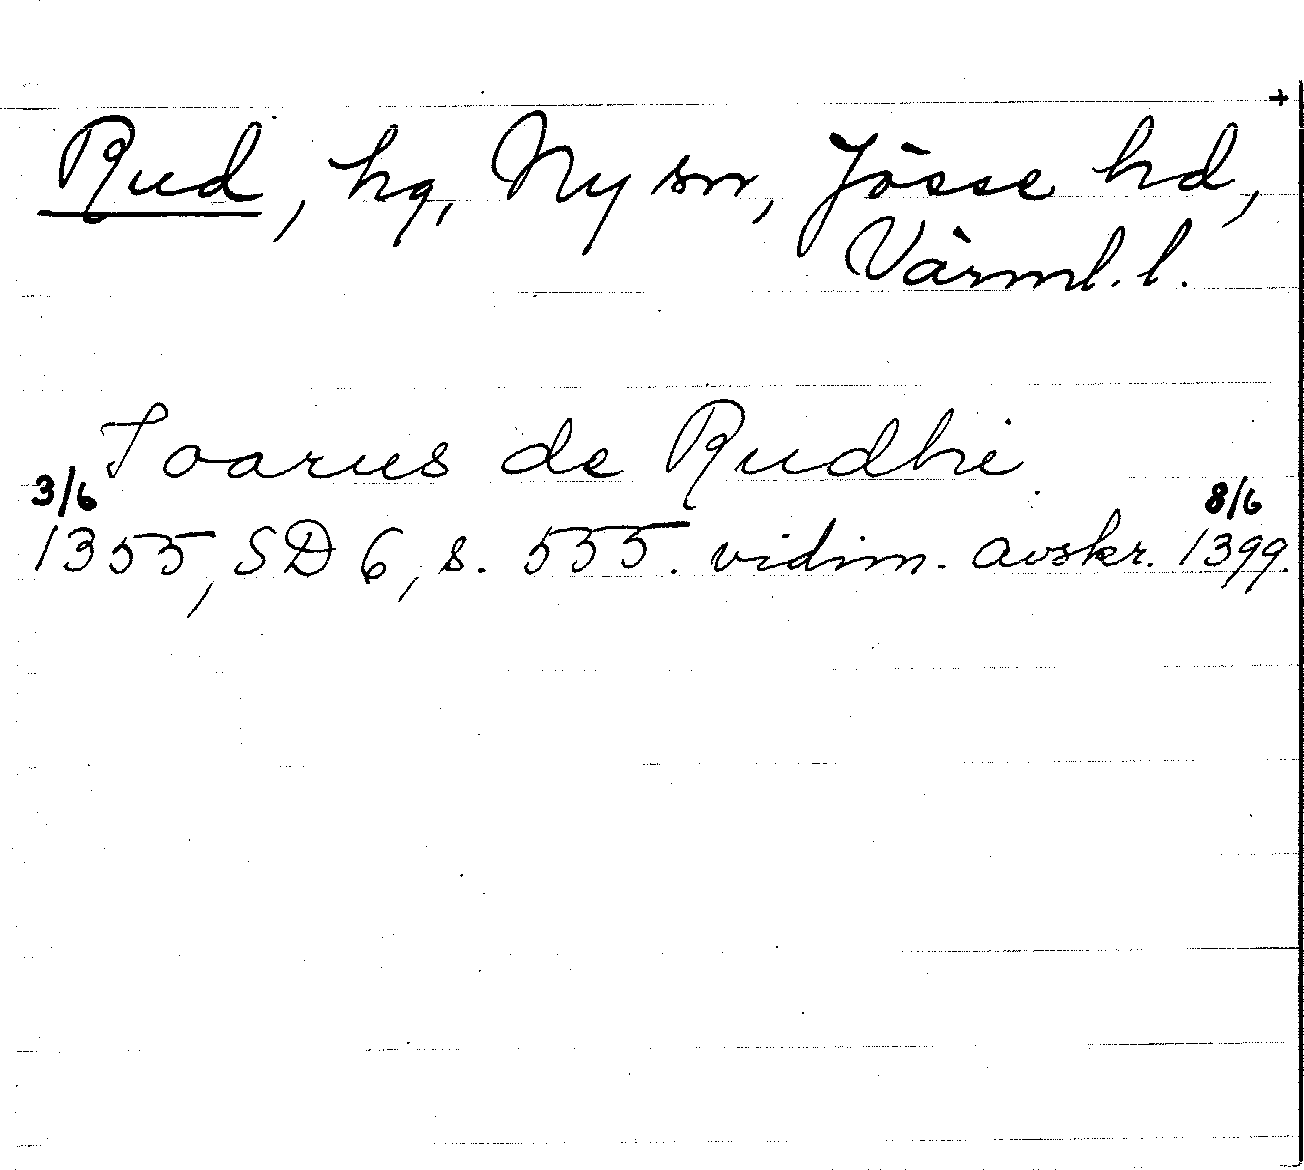 +
Rud, hg, Ny sn, Jösse hd,
Värml. l.
Ioarus de Rudhi
3/6 8/6
1355, SD 6, s. 555. vidim. avskr. 1399.